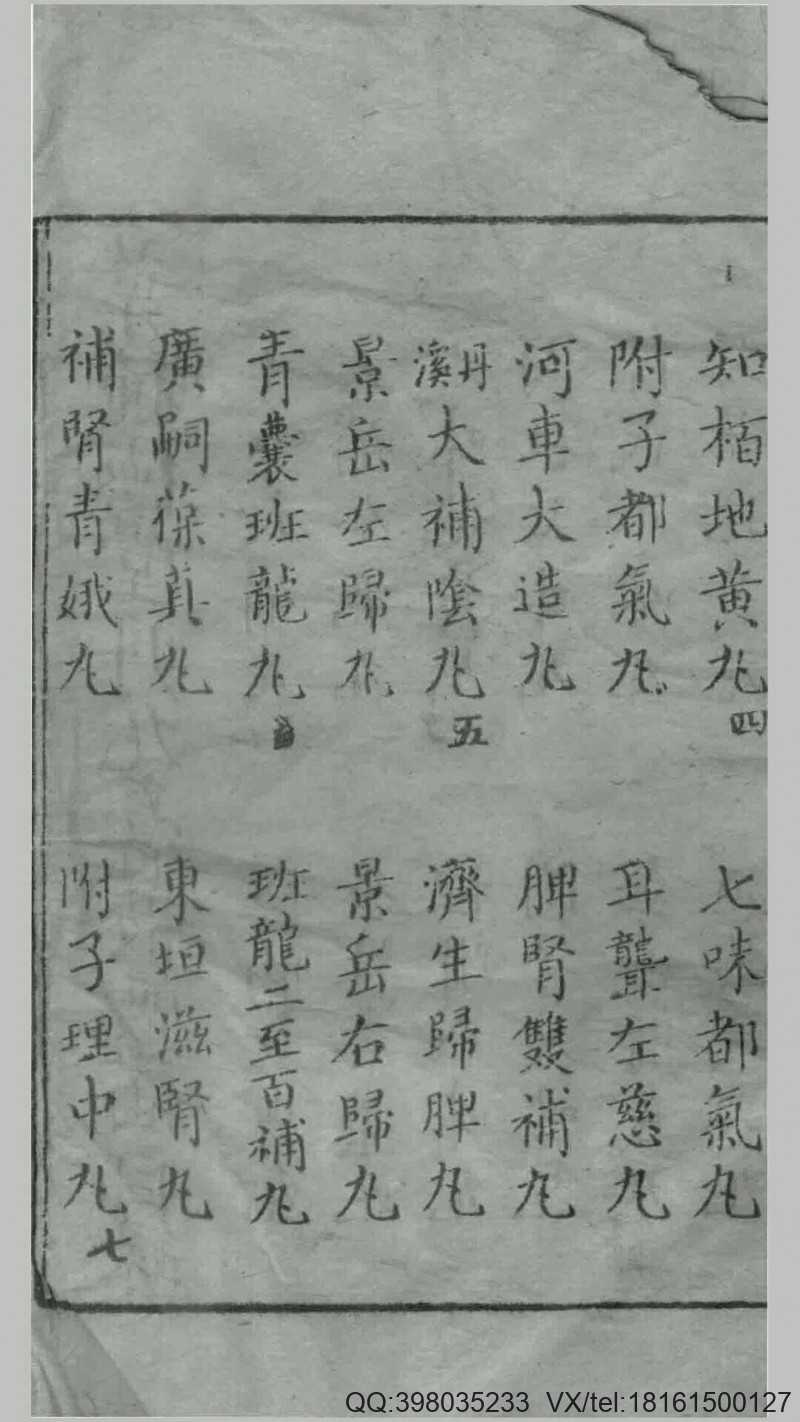 知栢地黄丸 四
七味都氣丸
附子都氣丸
耳聾左慈丸
河車大造丸
脾腎雙補丸
丹溪大補陰丸 五
濟生歸脾丸
景岳左歸丸
景岳右歸丸
青囊班龍丸
班龍二至百補丸
廣嗣葆真丸
東垣滋腎丸
補腎青娥丸
附子理中丸 七
QQ:398035233 VX/tel:18161500127